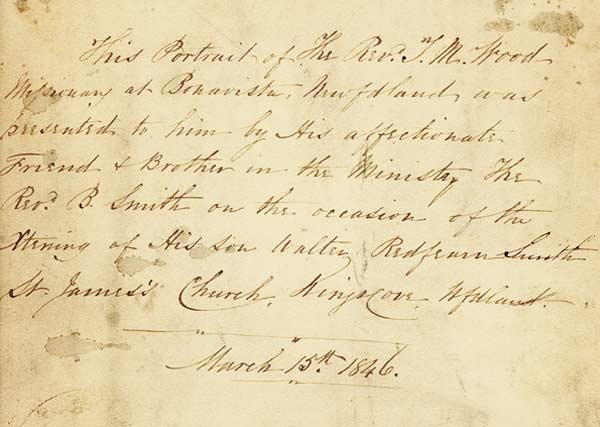 This Portrait of The Revd. T. M. Wood
Missionary at Bonavista, Newfdland, was
presented to him by His affectionate
Friend & Brother in the Ministry The
Revd. B. Smith on the occasion of the
Xtening of His son Walter Redfearn Smith
St. James's Church, Kingscove, Nfdland.
March 15th. 1846.